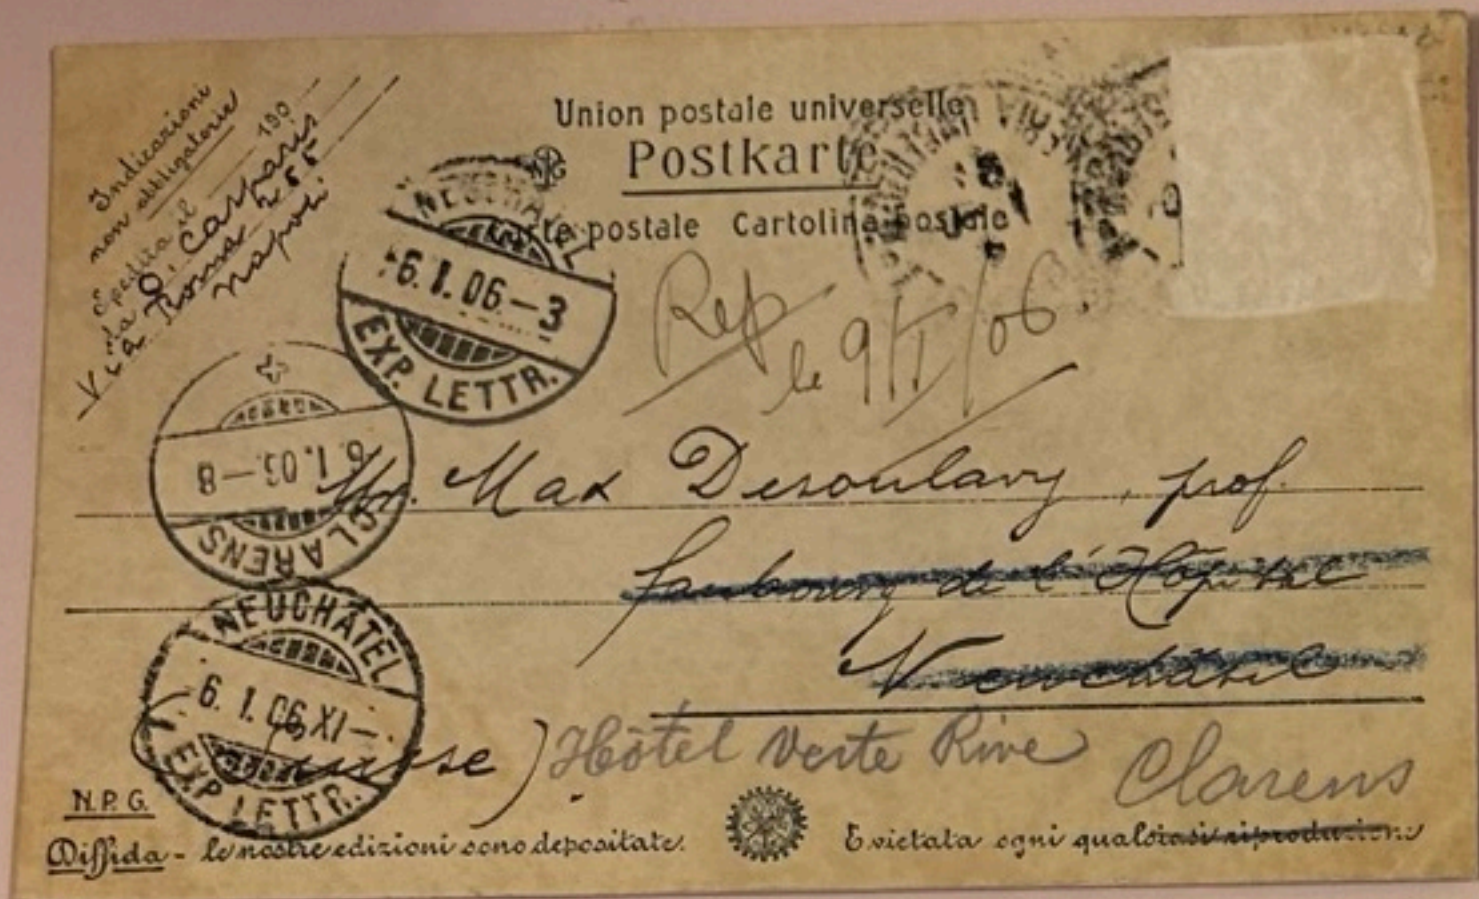 Indicazioni
non obbligatorie
Spedita il 190
da O. Casparis
Via Roma 255
Napoli
Union postale universelle
Postkarte
Carte postale Cartolina postale
NEUCHÂTEL
6.1.06.-3
EXP. LETTR.
Rep
le 9/I/06.
CLARENS
6.1.06.-8
Mr. Max Desoulavy, prof.
faubourg de l'Hôpital
Neuchâtel
NEUCHÂTEL
6.1.06.XI-
EXP. LETTR.
(Suisse) Hôtel Verte Rive Clarens
N.P.G.
Diffida - le nostre edizioni sono depositate.
E vietata ogni qualsiasi riproduzione